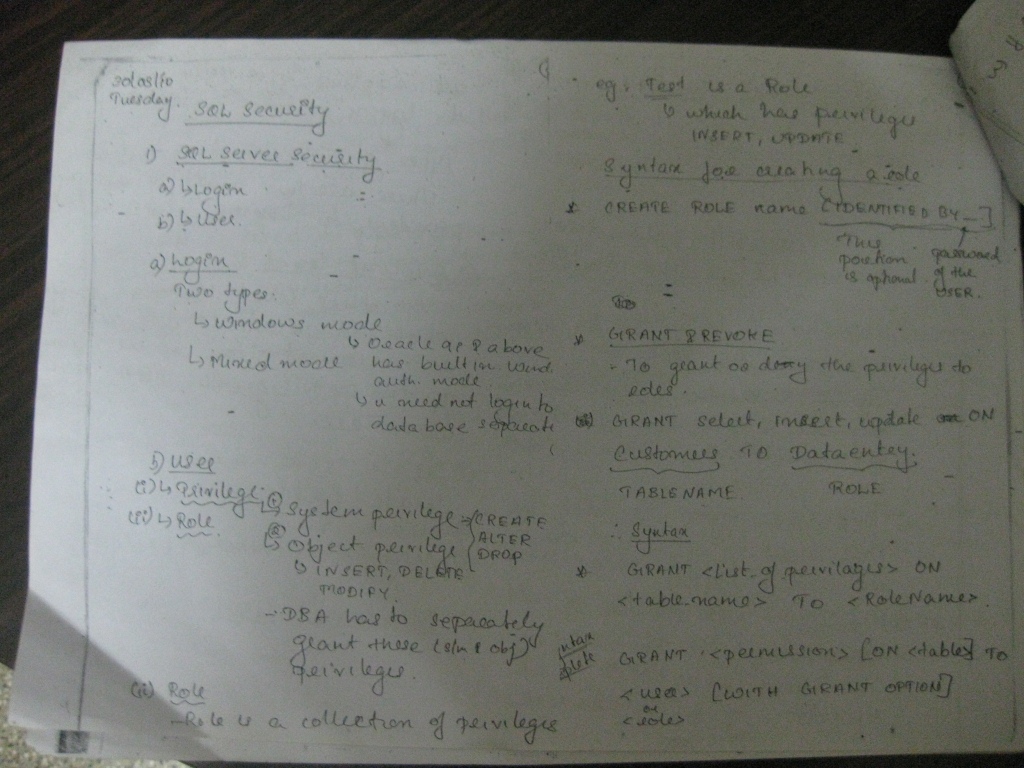 Tuesday.
SQL Security
1) SQL Server Security
a) ↳ Login
b) ↳ User.
a) Login
Two types:
↳ Windows mode
↳ Mixed mode
↳ Oracle 9i & above
has built in wind.
auth. mode.
↳ u need not login to
database separate
b) User
(i) ↳ Privilege.
(ii) ↳ Role.
(1) ↳ System privilege → CREATE
ALTER
DROP
(2) ↳ Object privilege
↳ INSERT, DELETE
MODIFY.
- DBA has to separately
grant these (s/m & obj)
privileges.
(ii) Role
- Role is a collection of privileges
eg: Test is a Role
↳ which has privileges
INSERT, UPDATE
Syntax for creating a role
* CREATE ROLE name [IDENTIFIED BY _]
This
portion
is optional
password
of the
USER.
To
* GRANT & REVOKE
- To grant or deny the privileges to
roles.
GRANT select, insert, update ON
Customers TO Dataentry.
TABLENAME ROLE
∴ Syntax
* GRANT <List_of_privilages> ON
<table_name> TO <RoleName>.
GRANT <permissions> [ON <table>] TO
<user> [WITH GRANT OPTION]
or
<role>